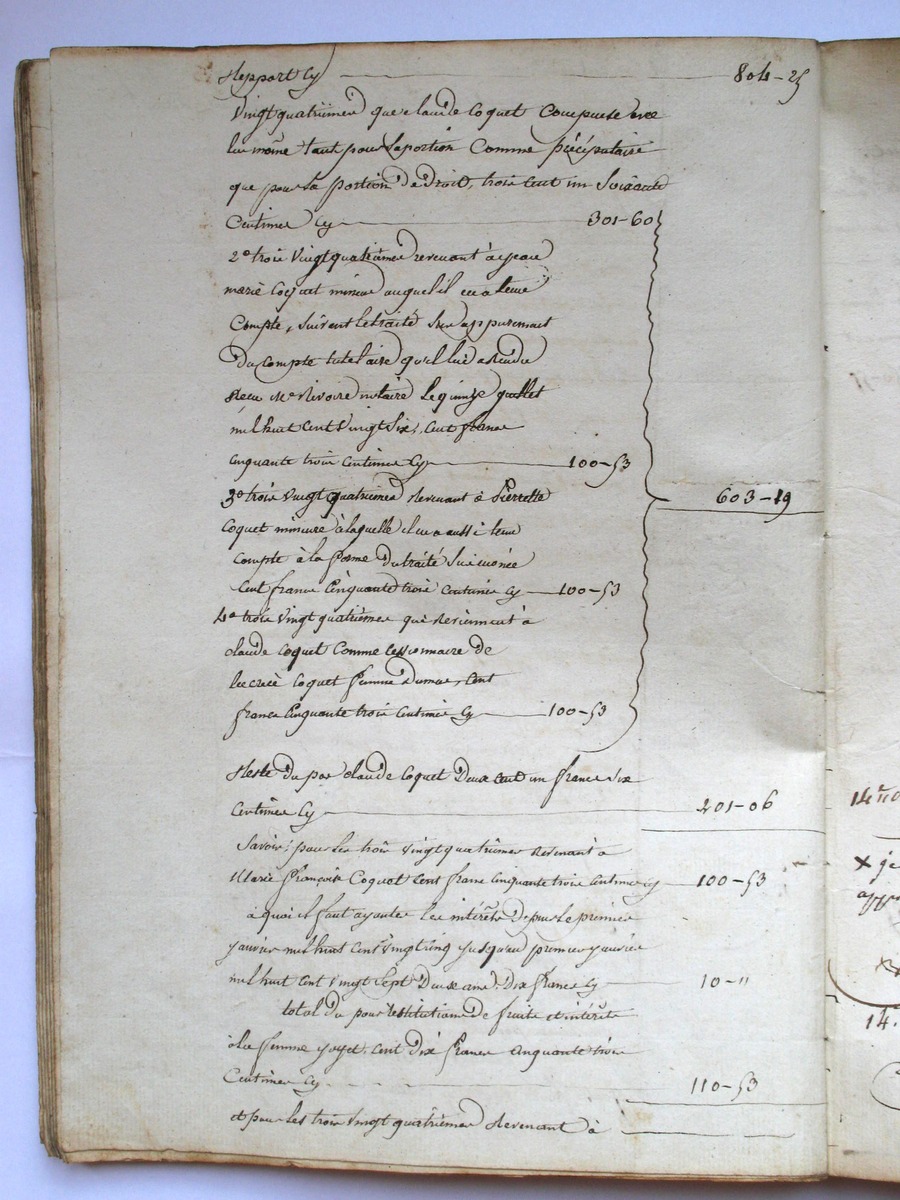 Report Cy 804-25
Vingtquatrièmes que Claude Coquet Compense avec
lui même tant pour la portion Comme préciputaire
que pour la portion de Droit, trois Cent un Soixante
Centimes Cy 301-60
2° trois Vingtquatrièmes revenant à
marie Coquet mineur auquel il en a tenu
Compte, suivant le traité Sur appurement
Du Compte tutelaire qu'il lui a Rendu
Reçu Me Rivoire notaire Le quinze juillet
mil huit Cent Vingt Six, Cent francs
Cinquante trois Centimes Cy 100-53
3° trois Vingtquatrièmes Revenant à Pierrette
Coquet mineure à laquelle il en a aussi tenu
Compte à la forme Du traité Sus énoncé
Cent francs Cinquante trois Centimes Cy 100-53
603-19
4° trois Vingt quatrièmes qui Reviennent à
Claude Coquet Comme Cessionnaire de
Lucrèce Coquet femme Dumas, Cent
francs Cinquante trois Centimes Cy 100-53
Reste Du par Claude Coquet Deux Cent un francs Six
Centimes Cy 201-06
Savoir; pour les trois Vingtquatrièmes Revenant à
Marie Françoise Coquet Cent francs Cinquante trois Centimes Cy 100-53
à quoi il faut ajouter les intérêts Depuis le premier
janvier mil huit Cent Vingt cinq jusqu'au premier janvier
mil huit Cent Vingt Sept Deux ans, Dix francs Cy 10-"
total Du pour Restitution De fruits et intérêts
à la femme Cent Dix francs Cinquante trois
Centimes Cy 110-53
et pour les trois Vingt quatrièmes Revenant à
14
x je
14.